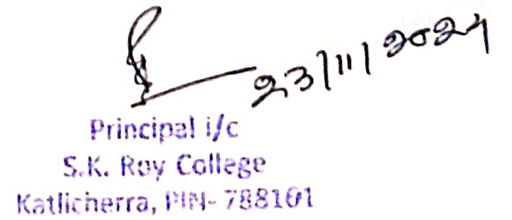 23/11/2024
Principal i/c
S.K. Roy College
Katlicherra, PIN- 788161